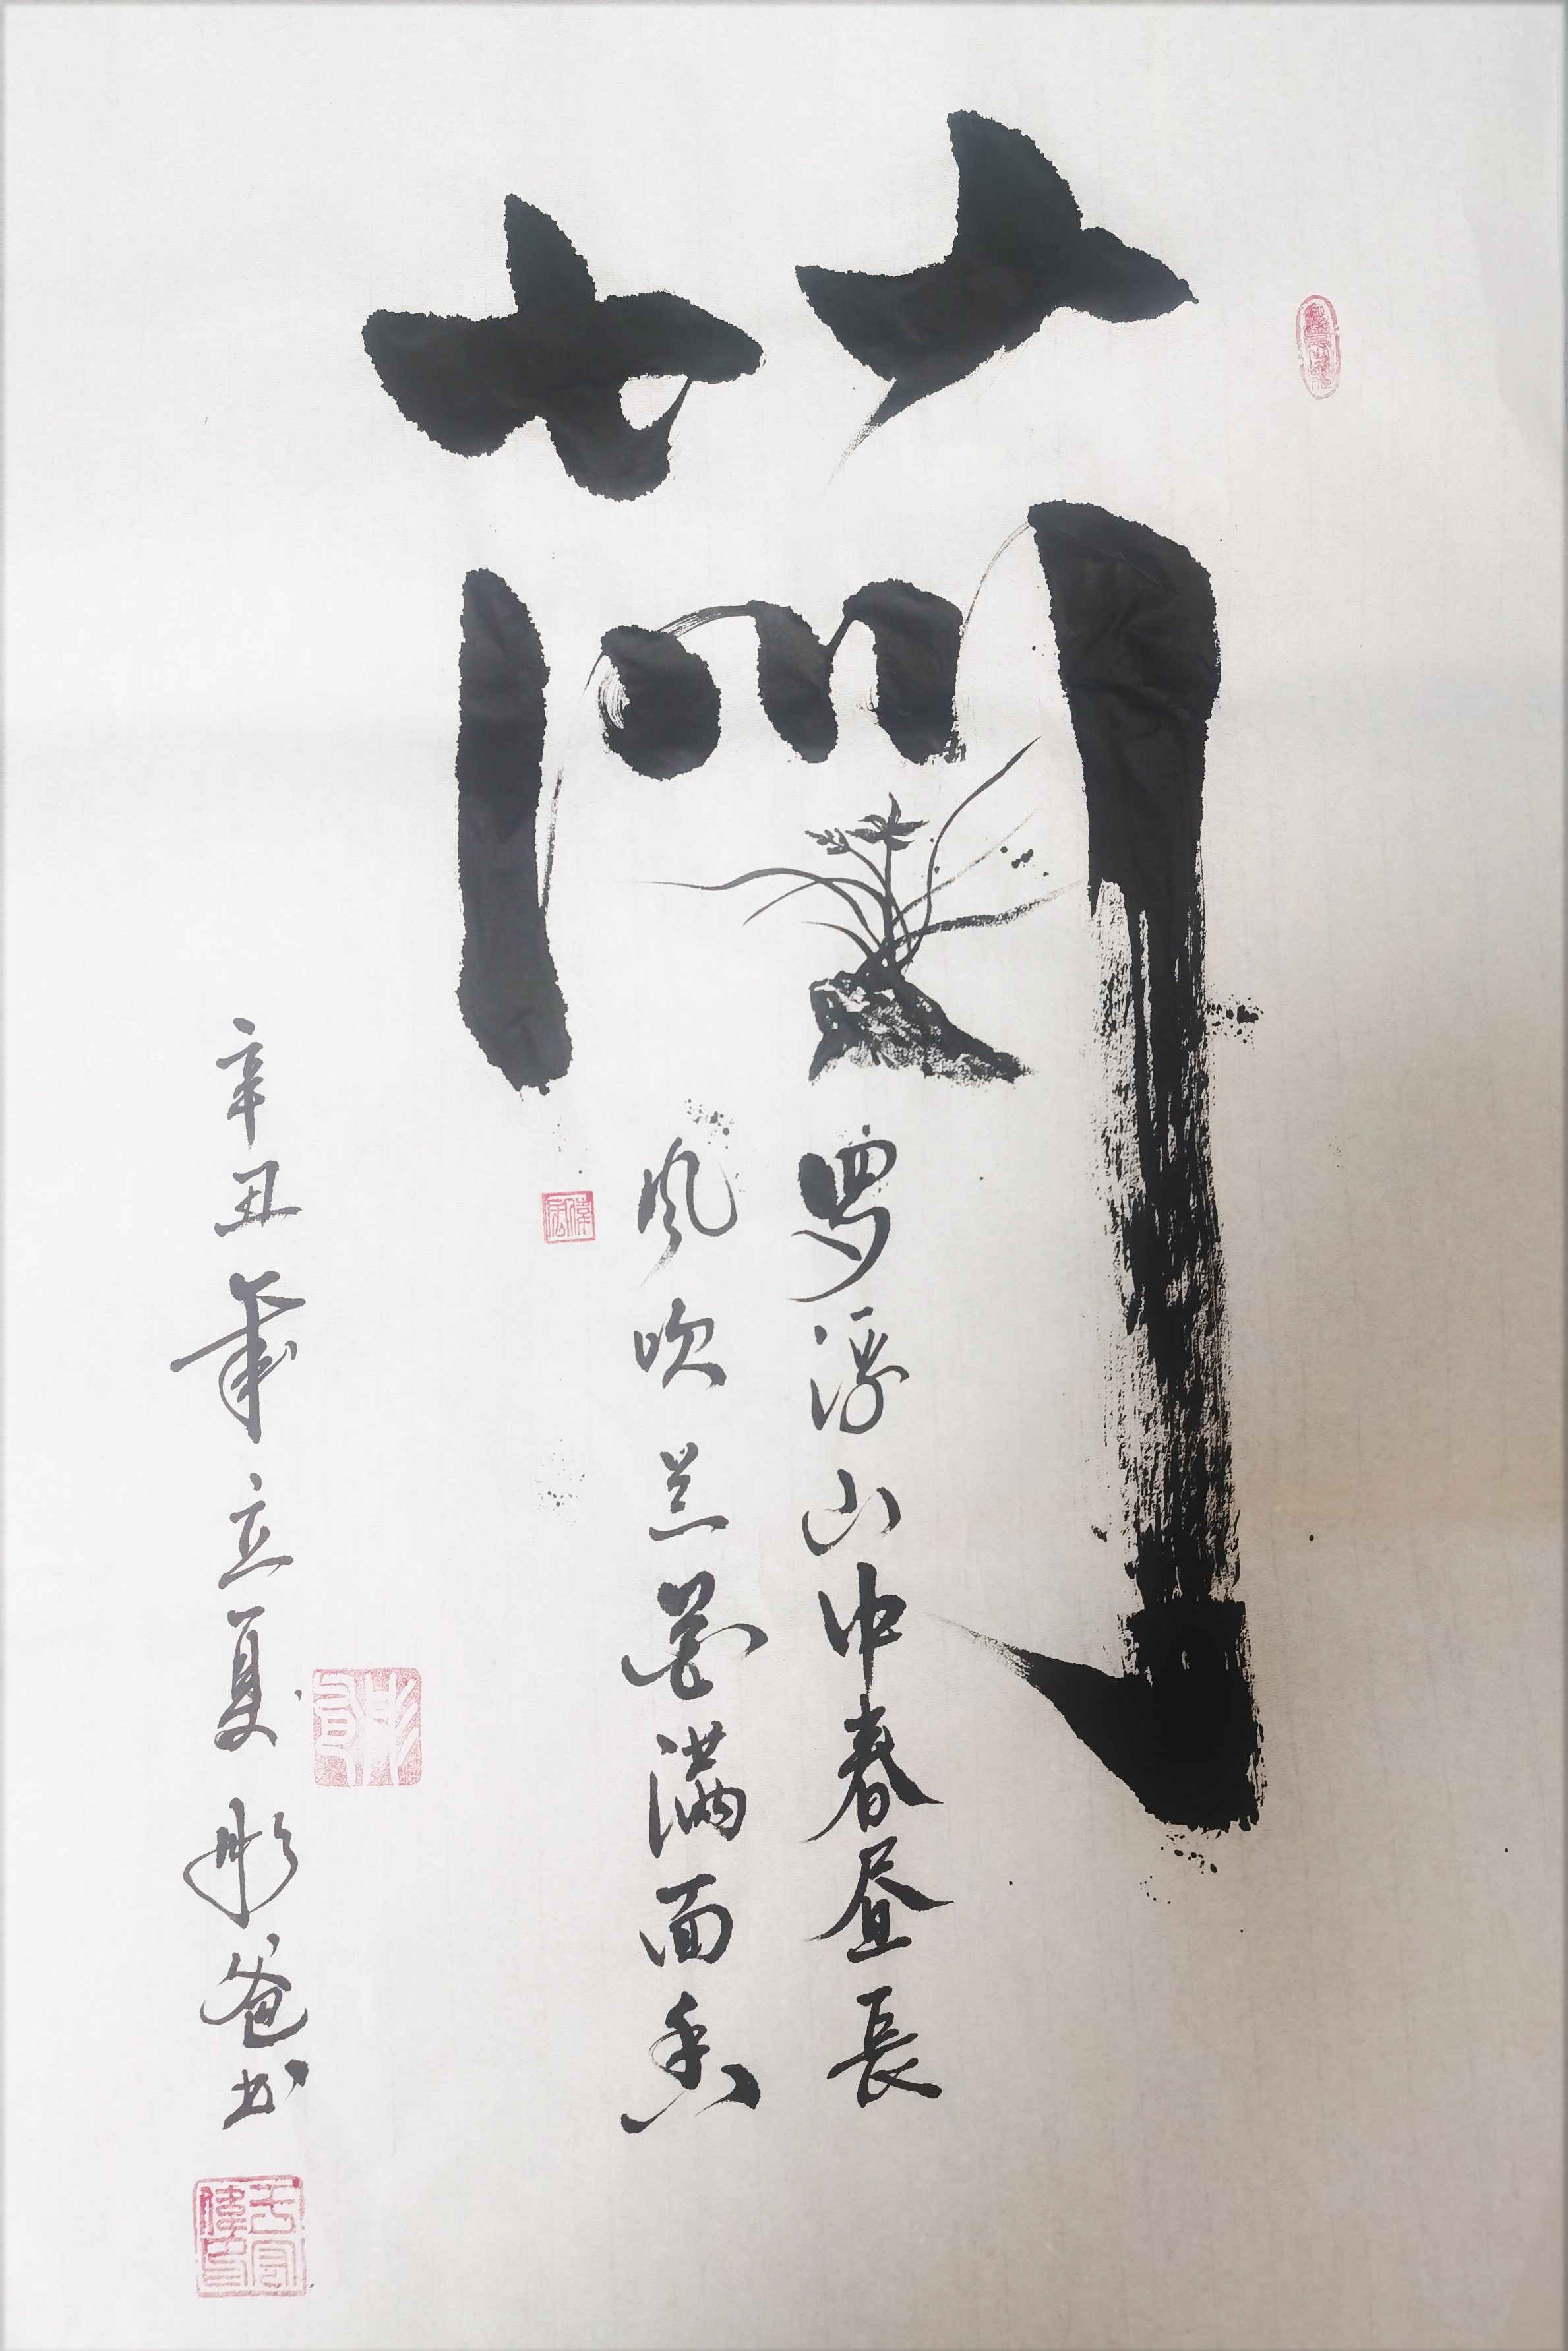 蘭
罗浮山中春昼長
风吹兰蕙满面香
辛丑年立夏彤爸书